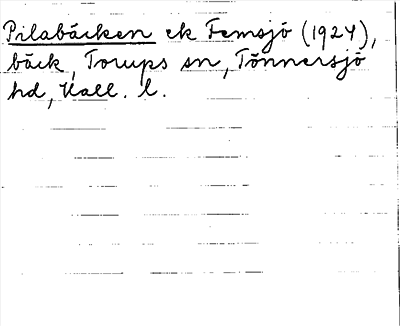 Pilabäcken ek Femsjö (1924),
bäck, Torups sn, Tönnersjö
hd, Hall. l.